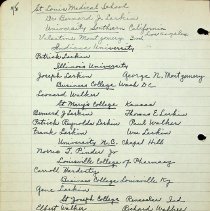 St Louis Medical School
Dr Bernard J Larkin
University Southern California
Los Angeles
Valentine Montgomery Ind
Indiana University
Patrick Larkin
Illinois University
Joseph Larkin George R. Montgomery
Business College Wash D.C.
Leonard Walker
St Mary's College Kansas
Bernard J Larkin Thomas E Larkin
Patrick Reynolds Larkin Paul Walker
Frank Larkin Wm Larkin
University N.C. Chapel Hill
Norris J. Jr
Louisville College of Pharmacy
Carroll
Business College Louisville Ky
Gene Larkin
St Joseph College Rensselaer Ind
Elbert Walker Richard Walker